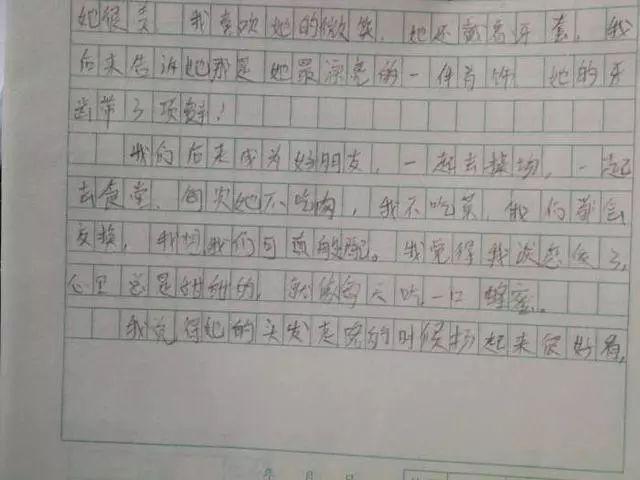 她很美 我喜欢她的微笑，她还戴着牙套，我
后来告诉她那是她最漂亮的一件首饰 她的牙
齿带了项链！
我们后来成为好朋友，一起去操场，一起
去食堂，每次她不吃肉，我不吃菜，我们都会
交换，我想我们可真的般配。我觉得我谈恋爱了，
心里总是甜甜的，就像每天吃一口蜂蜜。
我觉得她的头发走路的时候扬起来很好看，
年 月 日